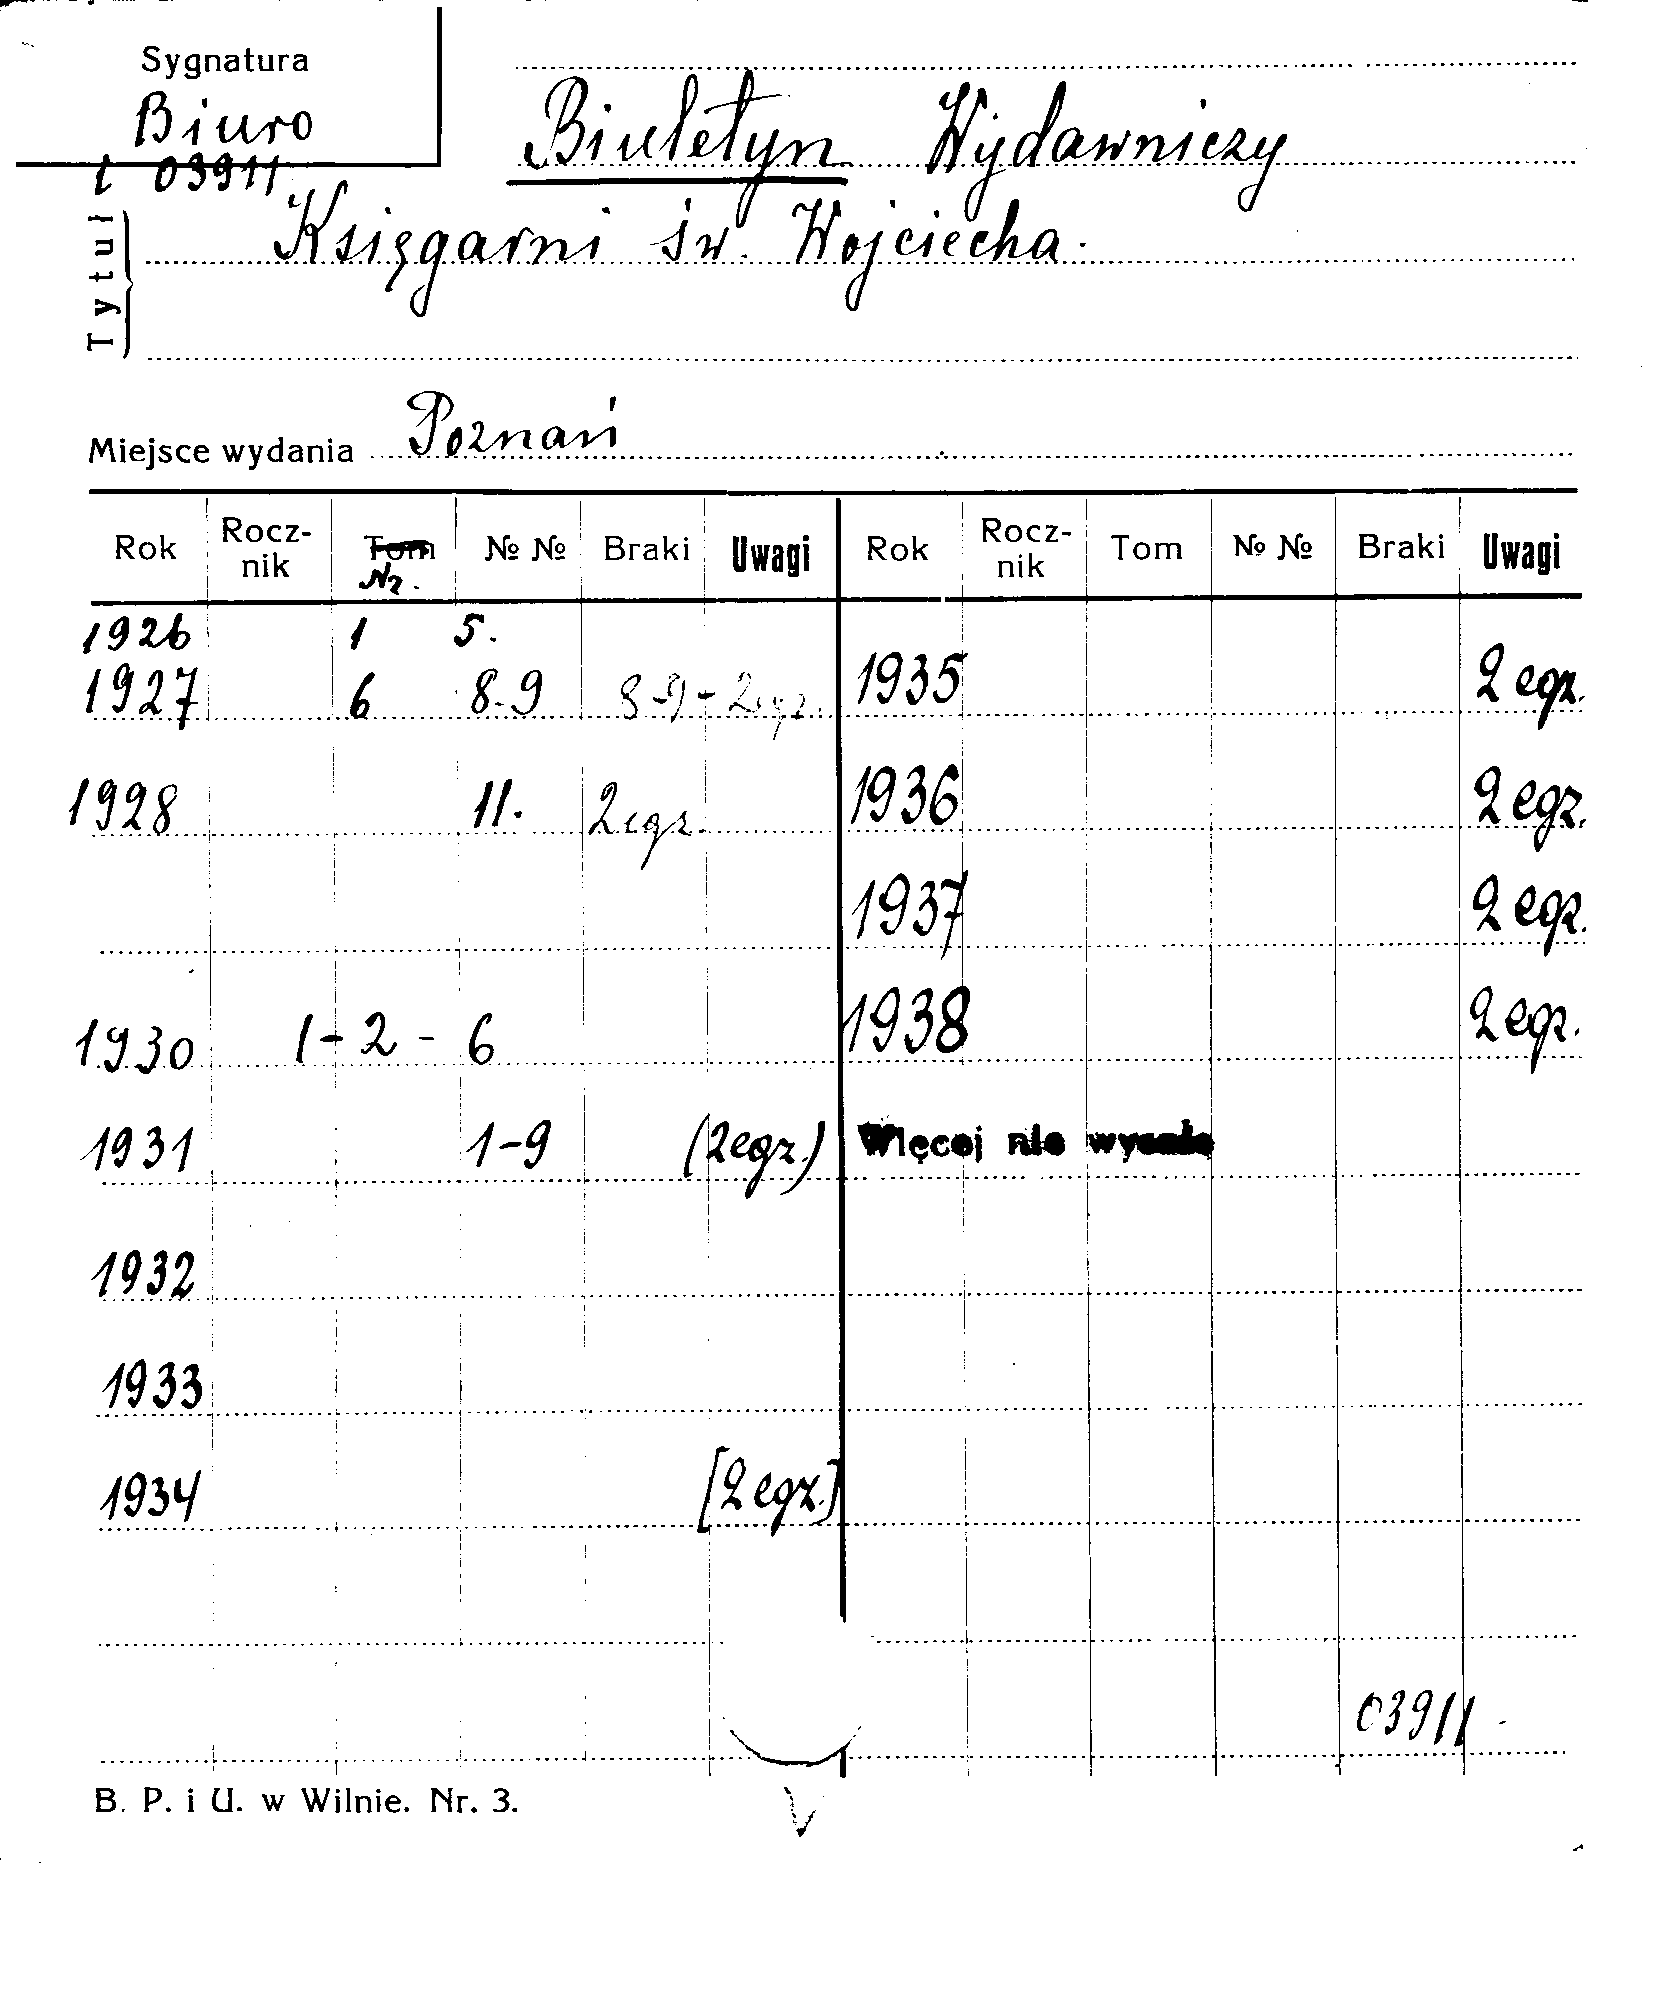 Sygnatura
Biuro
t 03911
Biuletyn Wydawniczy
Księgarni św. Wojciecha.
Tytuł
Miejsce wydania Poznań
Rok Rocz-nik Tom Nr. № № Braki Uwagi Rok Rocz-nik Tom № № Braki Uwagi
1926 1 5.
1927 6 8.9 8-9-2egz. 1935 2 egz.
1928 11. 2egz. 1936 2 egz.
1937 2 egz.
1930 1-2-6 1938 2 egz.
1931 1-9 (2egz.) Więcej nie
1932
1933
1934 [2 egz.]
03911
B. P. i U. w Wilnie. Nr. 3.